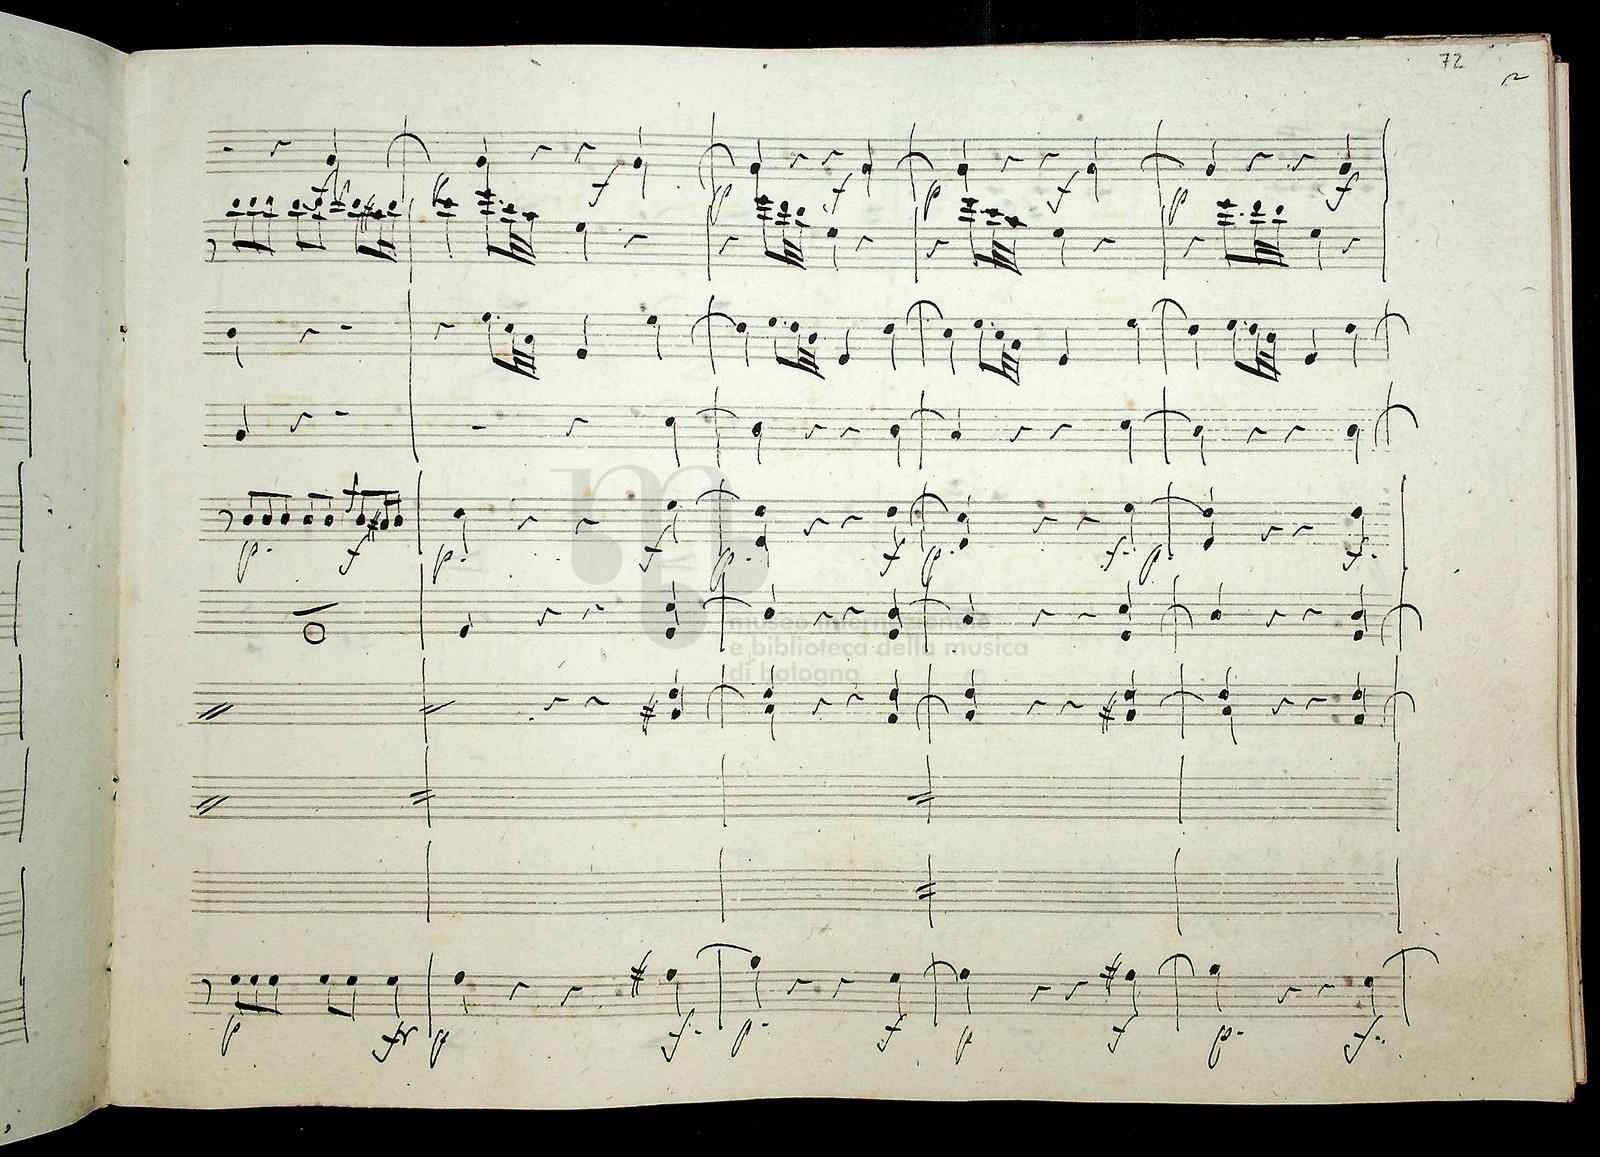 72
f
p f p f p f
p. f f
p. f p. f p. f. p. f.
museo internazionale
e biblioteca della musica
di bologna
p fr p f. p. f p f p. f.